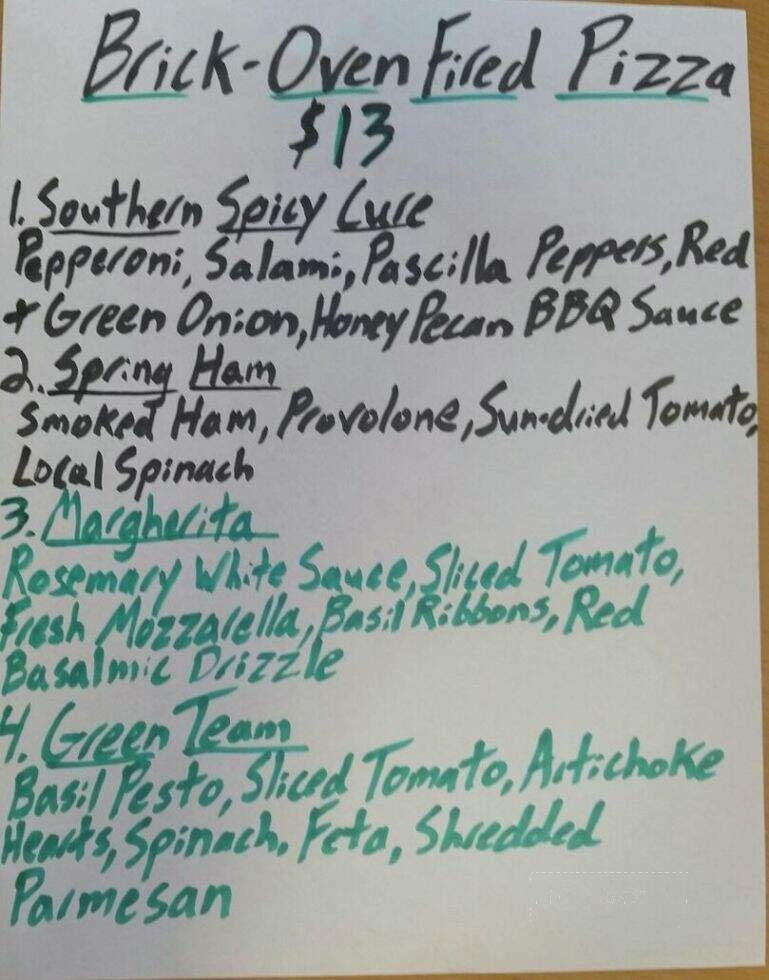 Brick-Oven Fired Pizza
$13
1. Southern Spicy Cure
Pepperoni, Salami, Pascilla Peppers, Red
+ Green Onion, Honey Pecan BBQ Sauce
2. Spring Ham
Smoked Ham, Provolone, Sun-dried Tomato,
Local Spinach
3. Margherita
Rosemary White Sauce, Sliced Tomato,
Fresh Mozzarella, Basil Ribbons, Red
Basalmic Drizzle
4. Green Team
Basil Pesto, Sliced Tomato, Artichoke
Hearts, Spinach, Feta, Shredded
Parmesan